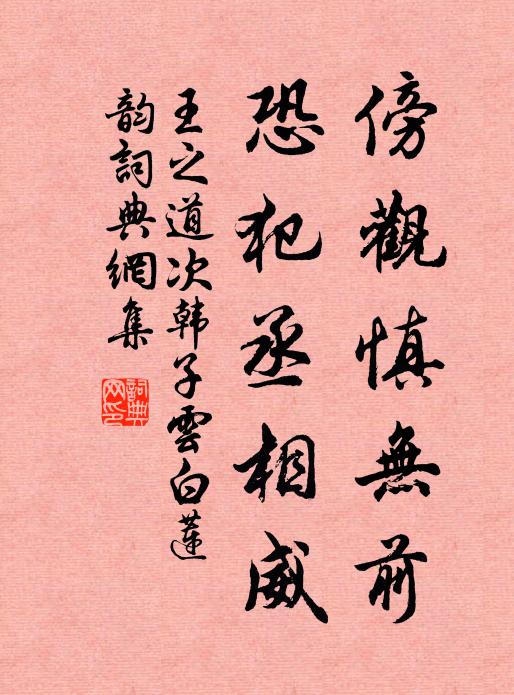 傍觀慎無前
恐犯丞相威
王之道次韩子雲白蓮
韵詞典網集
詞典网印